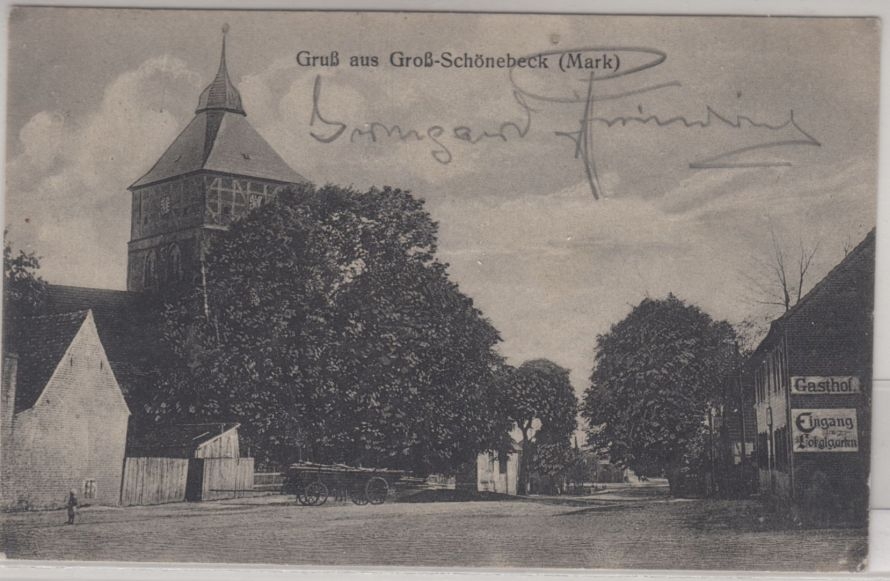 Gruß aus Groß-Schönebeck (Mark)
Irmgard
Gasthof.
Eingang
Lokalgarten